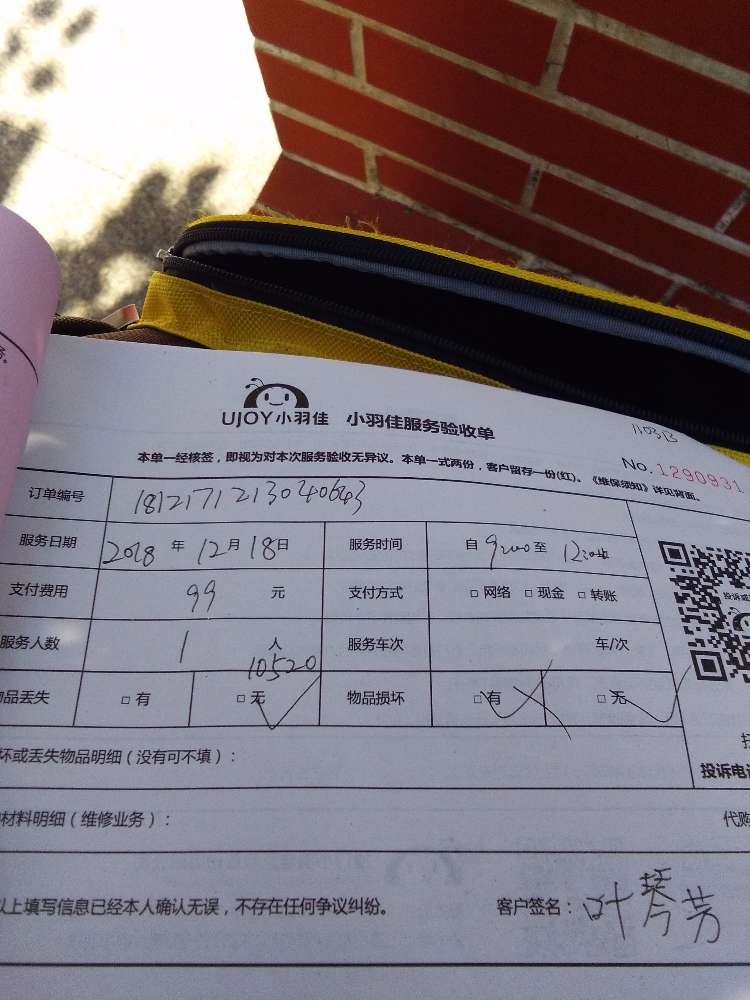 UJOY小羽佳 小羽佳服务验收单
本单一经核签，即视为对本次服务验收无异议。本单一式两份，客户留存一份(红)。《维保须知》详见背面。
No.1290931
订单编号 1812171213040643
服务日期 2018 年 12 月 18 日 服务时间 自 9:00 至 12:00
支付费用 99 元 支付方式 □ 网络 □ 现金 □ 转账
服务人数 1 人 服务车次 车/次
10520
品丢失 □ 有 □ 无 物品损坏 □ 有 □ 无
坏或丢失物品明细（没有可不填）：
材料明细（维修业务）： 代购
以上填写信息已经本人确认无误，不存在任何争议纠纷。 客户签名：叶琴芳
投诉电